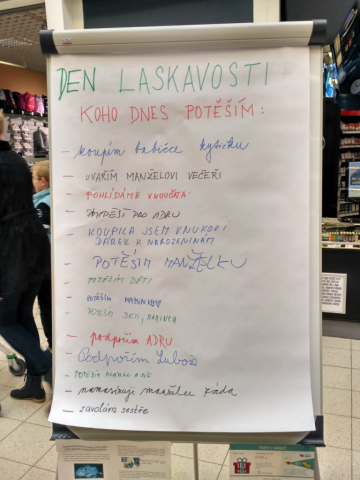 DEN LASKAVOSTI
KOHO DNES POTĚŠÍM:
- koupím babičce kytičku
- UVAŘÍM MANŽELOVI VEČEŘI
- POHLÍDÁME VNOUČATA
- PRO ADRU
- KOUPILA JSEM VNUKOVI
DÁREK K NAROZENINÁM
- POTĚŠÍM MANŽELKU
POTĚŠÍM DĚTI
- POTĚŠÍM MAMINKU
POTĚŠÍM DĚTI,
- podpořím ADRU
- Podpořím Luboše
- POTĚŠÍM
- namasíruji manželce záda
- zavolám sestře